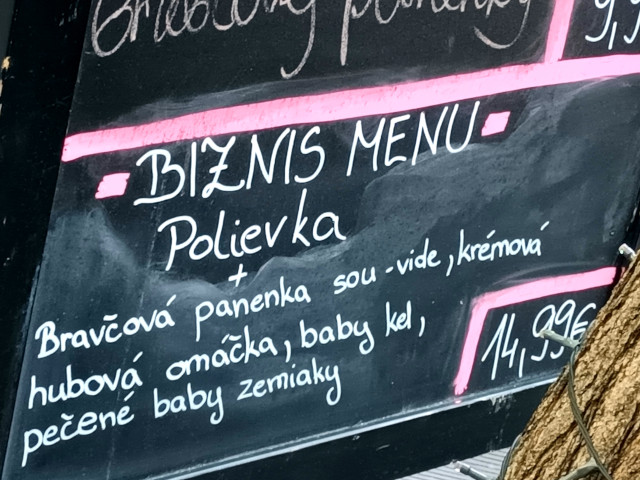 BIZNIS MENU
Polievka
+
Bravčová panenka sou-vide, krémová
hubová omáčka, baby kel,
pečené baby zemiaky
14,99€